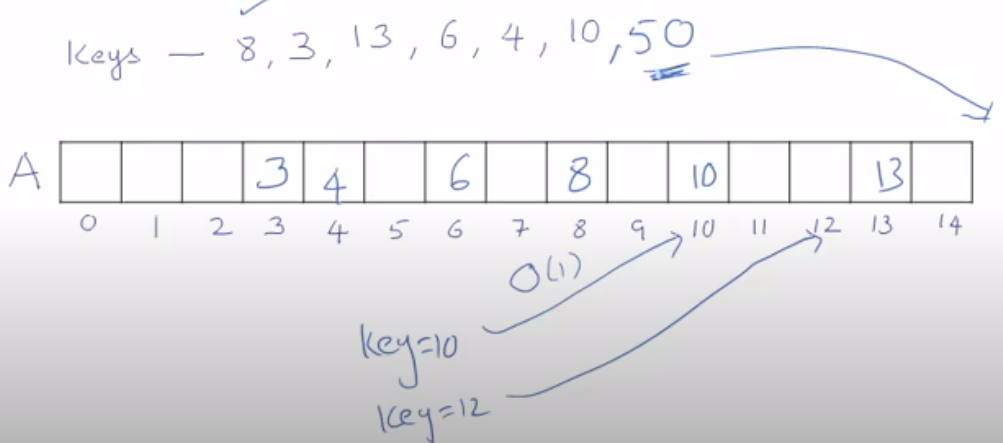 keys — 8, 3, 13, 6, 4, 10, 50
A 3 4 6 8 10 13
0 1 2 3 4 5 6 7 8 9 10 11 12 13 14
O(1)
key=10
key=12